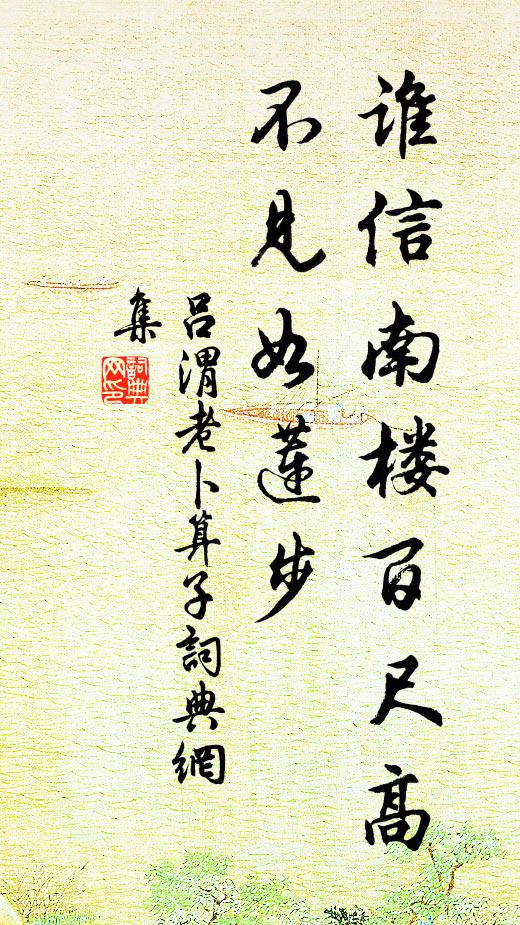 谁信南楼百尺高
不见如莲步
吕渭老卜算子詞典網
集
詞典
网印